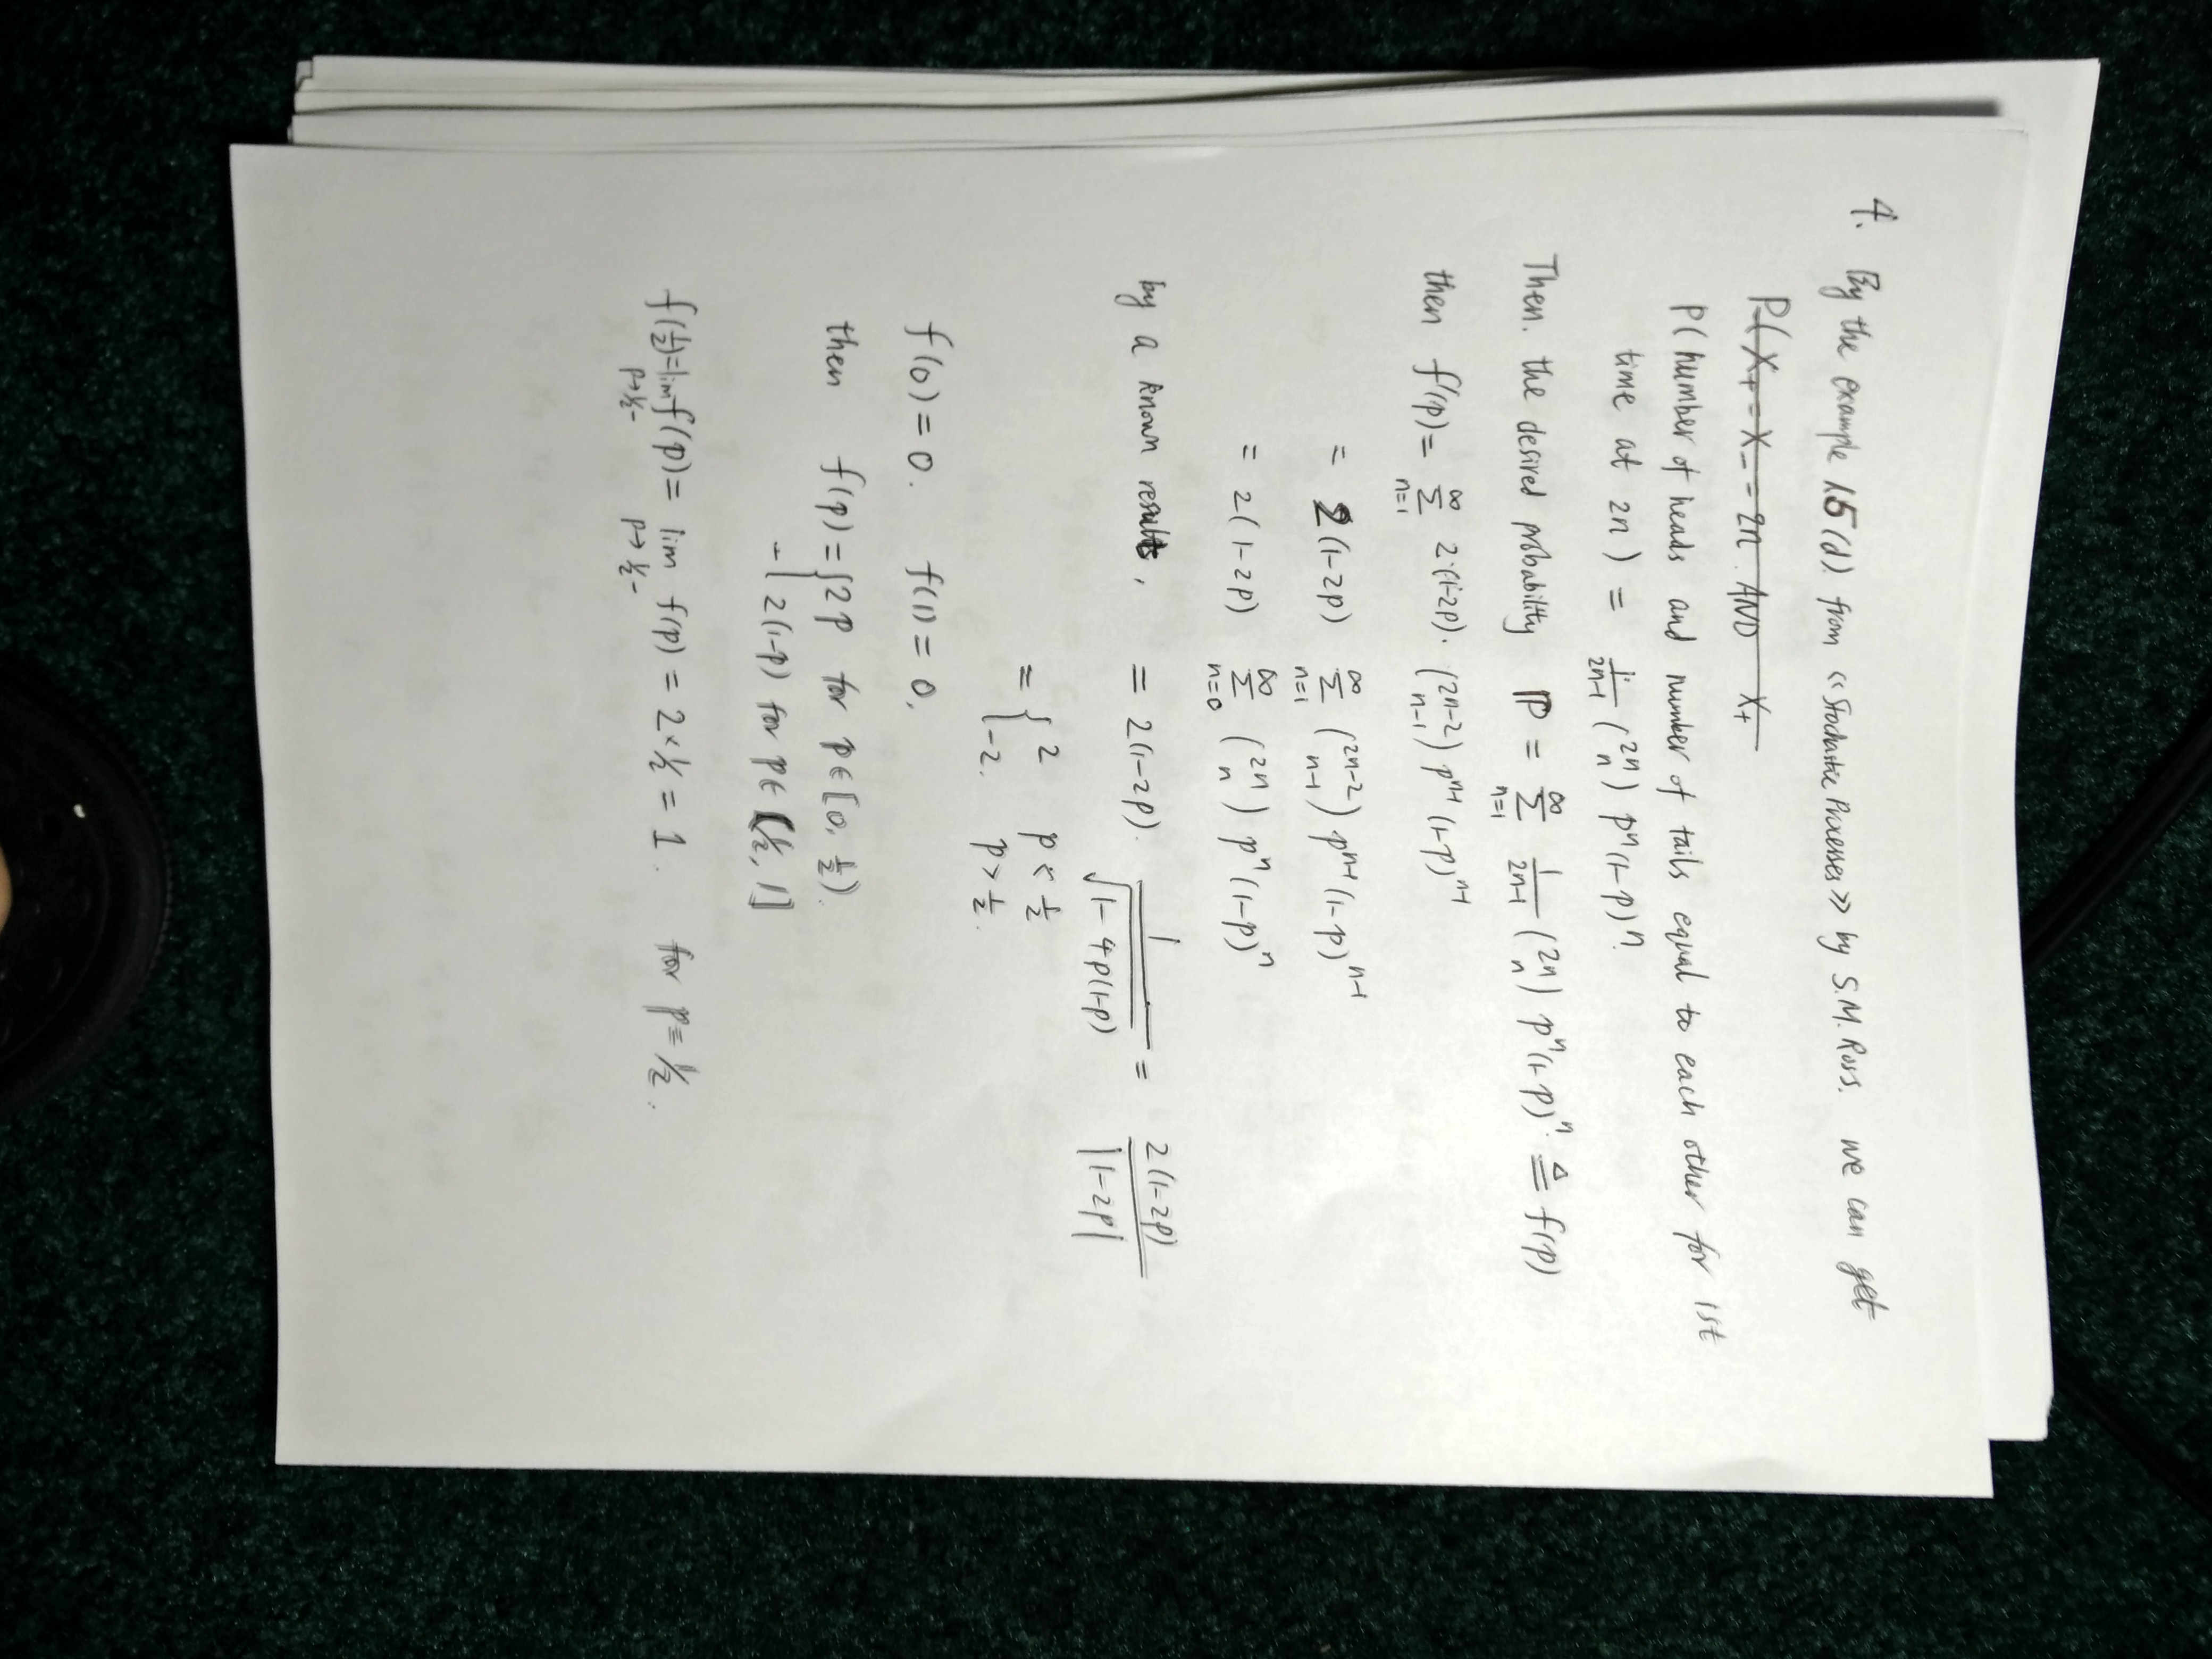 4. By the example 1.5(d) from «Stochastic Processes» by S.M. Ross. we can get
P(X+ = X- = 2n. AND X+
P(number of heads and number of tails equal to each other for 1st
time at 2n) = 1/(2n-1) (2n n) p^n (1-p)^n.
Then. the desired probability P = ∑_{n=1}^{∞} 1/(2n-1) (2n n) p^n (1-p)^n. ≜ f(p)
then f'(p) = ∑_{n=1}^{∞} 2·(1-2p)·(2n-2 n-1) p^{n-1} (1-p)^{n-1}
= 2(1-2p) ∑_{n=1}^{∞} (2n-2 n-1) p^{n-1} (1-p)^{n-1}
= 2(1-2p) ∑_{n=0}^{∞} (2n n) p^n (1-p)^n
by a known results, = 2(1-2p). 1/√(1-4p(1-p)) = 2(1-2p)/|1-2p|
= { 2 p < 1/2
-2. p > 1/2.
f(0) = 0. f(1) = 0,
then f(p) = { 2p for p∈[0, 1/2).
2(1-p) for p∈(1/2, 1]
f(1/2) = lim_{p→1/2-} f(p) = lim_{p→1/2-} f(p) = 2×1/2 = 1. for p = 1/2.